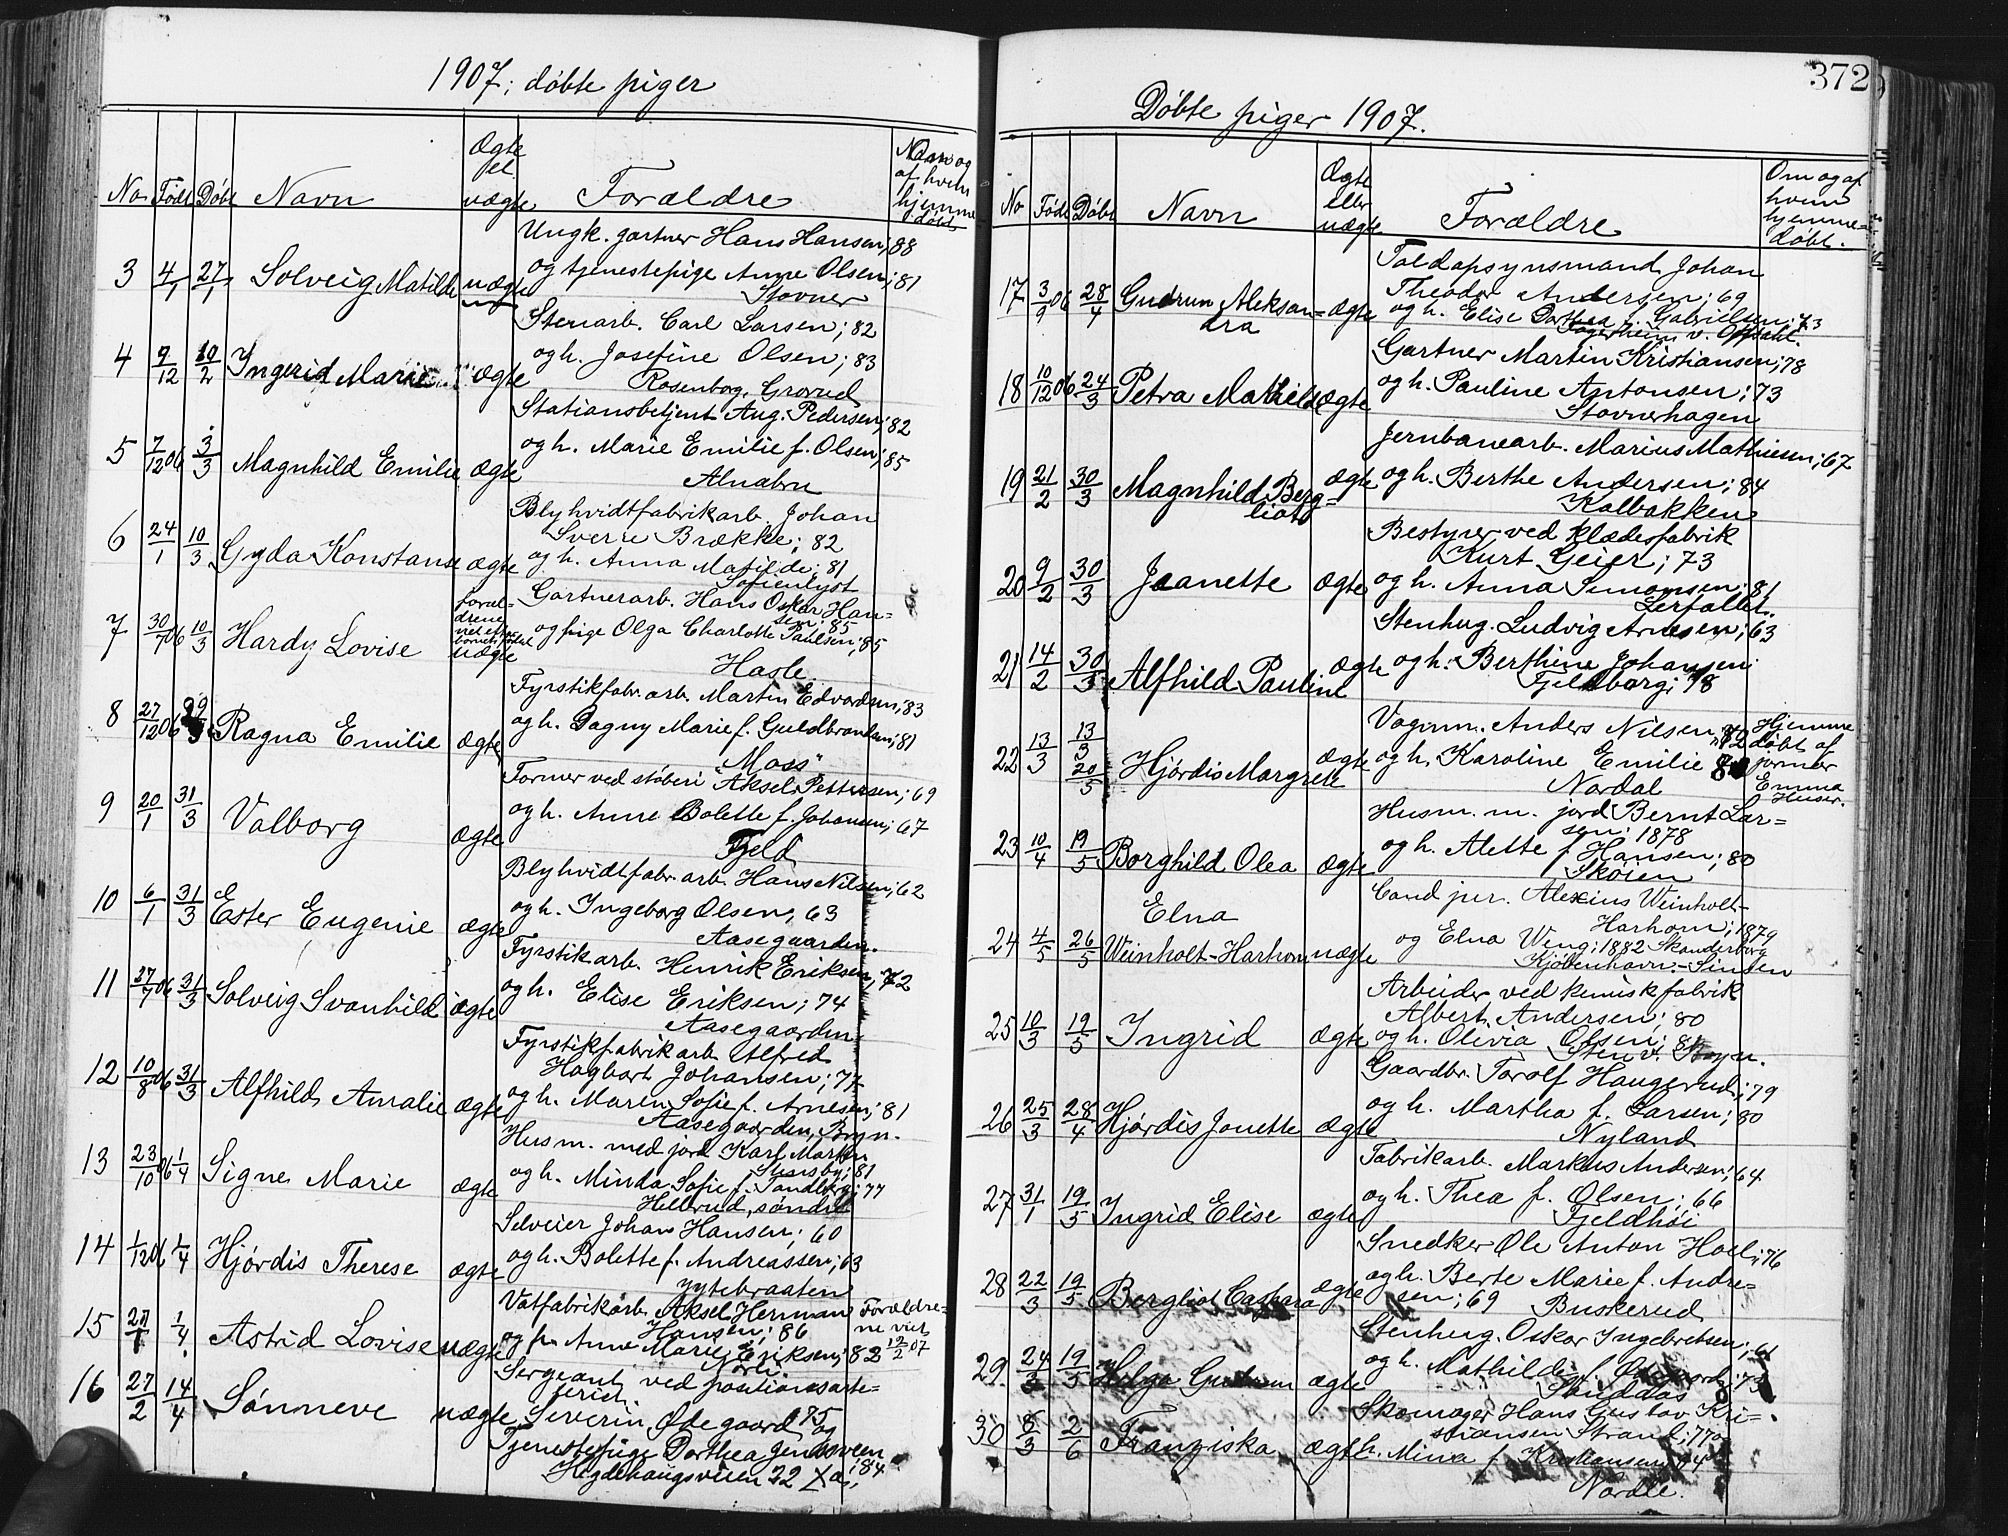 1907; døbte piger
No Født Døbt Navn Ægte el. uægte Forældre Navn og af hvem hjemmedøbt
Ungk. gartner Hans Hansen; 88
3 4/1 27/1 Solveig Matilde uægte og tjenestepige Anne Olsen; 81
Stovner
Stenarb. Carl Larsen; 82
4 9/12 10/2 Ingerid Marie ægte og h. Josefine Olsen; 83
Rosenborg, Grorud
Stationsbetjent Aug. Pedersen; 82
5 7/12 06 3/3 Magnhild Emilie ægte og h. Marie Emilie f. Olsen; 85
Alnabru
Blyhvidtfabrikarb. Johan
Sverre Brække; 82
6 24/1 10/3 Gyda Konstanse ægte og h. Anna Matilde; 81
Sofienlyst
Gartnerarb. Hans Oskar Hansen; 85
7 30/7 06 10/3 Hardy Lovise uægte og pige Olga Charlotte Paulsen; 85
Hasle
Fyrstikfabr. arb. Martin Edvardsen; 83
8 27/12 06 Ragna Emilie ægte og h. Dagny Marie f. Guldbrandsen; 81
"Moss"
Former ved støberi Aksel Pettersen; 69
9 20/1 31/3 Valborg ægte og h. Anne Bolette f. Johansen; 67
Fjeld
Blyhvidtfabr. arb. Hans Nilsen; 62
10 6/1 31/3 Ester Eugenie ægte og h. Ingeborg Olsen, 63
Aasegaarden.
Fyrstikarb. Henrik Eriksen, 72
11 27/7 06 31/3 Solveig Svanhild ægte og h. Elise Eriksen; 74
Aasegaarden
Fyrstikfabrikarb. Alfred
Hagbart Johansen; 77
12 10/8 06 31/3 Alfhild Amalie ægte og h. Maren Sofie f. Arnesen; 81
Aasegaarden, Bryn.
Husm. med jord Karl Martin
13 23/10 06 1/4 Signe Marie ægte og h. Minda Sofie f. Sandberg; 77
Hellerud, søndre
Selveier Johan Hansen; 60
14 1/12 06 1/4 Hjørdis Therese ægte og h. Bolette f. Andreassen; 63
Vatfabrikarb. Aksel Herman
Hansen; 86
15 1/4 Astrid Lovise uægte og fr. Anne Marie Eriksen; 82 Forældrene viet 12/2 07
Sergeant ved positionsartilleriet
16 27/2 14/4 Sønneve uægte Severin Ødegaard 75 og
Tjenestepige Dorthea Jensveen
Hegdehaugsveien 22 84

372
Døbte piger 1907.
No Født Døbt Navn Ægte eller uægte Forældre Om og af hvem hjemmedøbt.
Toldopsynsmand Johan
Theodor Andersen; 69
17 3/9 06 28/4 Gudrun Aleksandra ægte og h. Elise Dorthea f. Gabrielsen; 73
Gartner Martin Kristiansen; 78
18 10/12 06 24/3 Petra Mathilde ægte og h. Pauline Antonsen; 73
Stovnerhagen
Jernbanearb. Marius Mathiesen; 67
19 21/2 30/3 Magnhild Bergliot ægte og h. Berthe Andersen; 84
Kalbakken
Bestyrer ved klædesfabrik
Kurt Geier; 73
20 9/2 30/3 Jeanette ægte og h. Anna Simonsen; 81
Lerfallet.
Stenhug. Ludvig Arnesen; 63
21 14/2 30/3 Alfhild Pauline ægte og h. Berthine Johansen
Fjeldborg; 78
Vognm. Anders Nilsen 72
22 13/3 13/3 20/5 Hjørdis Margrete ægte og h. Karoline Emilie 80 Hjemmedøbt af jormor Emma Huser.
Nordal
Husm. m. jord Bernt Larsen; 1878
23 10/4 19/5 Borghild Olea ægte og h. Alette f. Hansen; 80
Skøien
Cand jur. Alexius Weinholt-
Harhorn; 1879
24 4/5 26/5 Elna Weinholt-Harhorn uægte og Elna Weng; 1882 Skanderborg
Kjøbenhavn - Sinsen
Arbeider ved kemisk fabrik
Albert Andersen; 80
25 10/3 19/5 Ingrid ægte og h. Olivia Olsen; 81
Sten v. Bryn.
Gaardbr. Torolf Haugerud; 79
26 25/3 28/4 Hjørdis Jonette ægte og h. Martha f. Larsen; 80
Nyland
Fabrikarb. Markus Andersen; 64
27 31/1 19/5 Ingrid Elise ægte og h. Thea f. Olsen; 66
Fjeldhøi
Snedker Ole Anton Hoel; 76
28 22/3 19/5 Bergliot Cathara ægte og h. Berte Marie f. Andresen; 69 Buskerud
Stenhug. Oskar Ingebretsen; 61
29 24/3 19/5 Helga Gudrun ægte og h. Mathilde f.
Skomager Hans Gustav Kristiansen Strand; 77 og
30 8/3 2/6 Franziska ægte h. Mina f. Kristiansen; 74
Nordli.